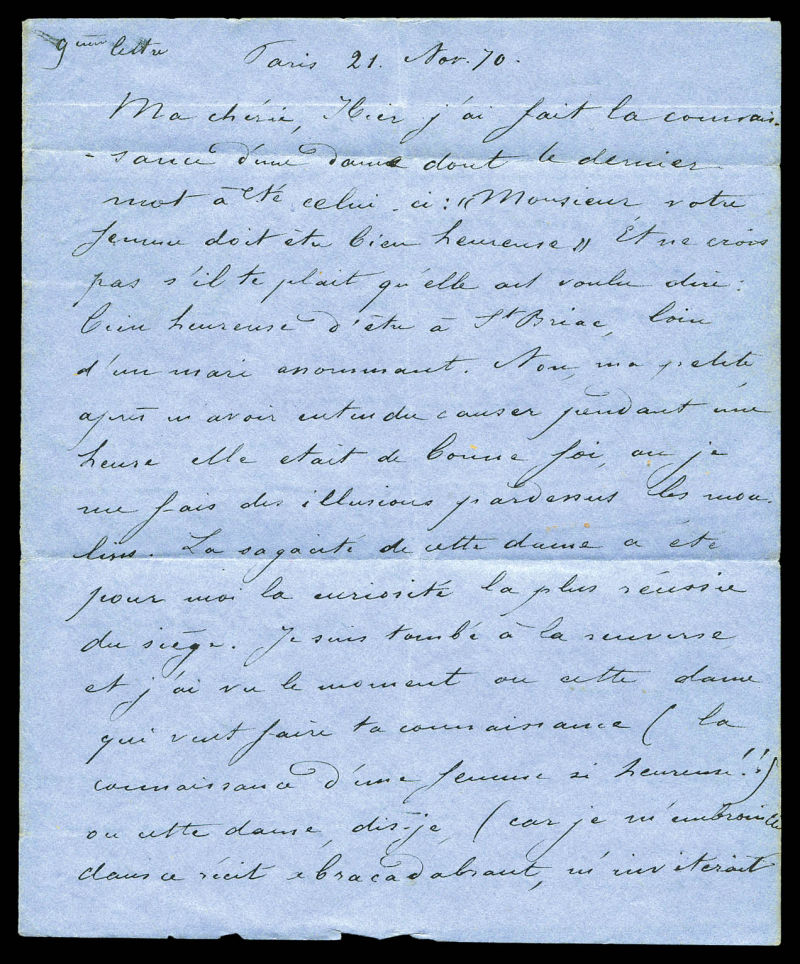 9ème lettre Paris 21. Nov. 70.
Ma chérie, Hier j'ai fait la connais-
-sance d'une dame dont le dernier
mot à été celui-ci : « Monsieur votre
femme doit être bien heureuse » Et ne crois
pas s'il te plait qu'elle ait voulu dire :
bien heureuse d'être à St Briac, loin
d'un mari assommant. Non, ma petite
après m'avoir entendu causer pendant une
heure elle était de bonne foi, ou je
me fais des illusions pardessus les mou-
lins. La sagacité de cette dame a été
pour moi la curiosité la plus réussie
du siège. Je suis tombé à la renverse
et j'ai vu le moment ou cette dame
qui veut faire ta connaissance ( la
connaissance d'une femme si heureuse!!)
ou cette dame, dis-je, ( car je m'embrouille
dans ce récit ebracadabrant, m'inviterait